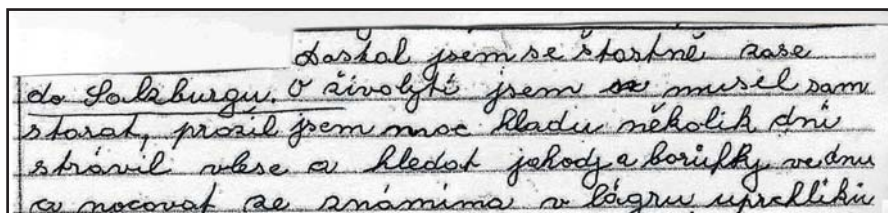 Dostal jsem se štastně zase
do Salzburgu. O živobytí jsem se musel sam
starat, prožil jsem moc hladu několik dnů
strávil vlese a hledat jahody a borůfky ve dnu
a nocovat ze známíma v lágru uprchliků